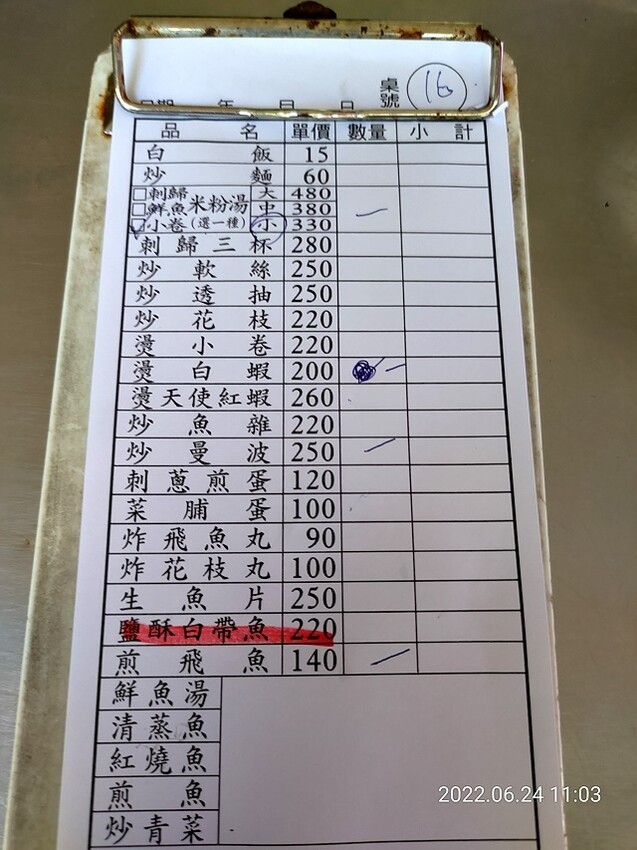 桌號 16
日期 年 月 日
品名 單價 數量 小計
白飯 15
炒麵 60
□刺歸 大 480
□鮮魚 米粉湯 中 380 一
□小卷 (選一種) 小 330
刺歸三杯 280
炒軟絲 250
炒透抽 250
炒花枝 220
燙小卷 220
燙白蝦 200 一
燙天使紅蝦 260
炒魚雜 220
炒曼波 250 一
刺蔥煎蛋 120
菜脯蛋 100
炸飛魚丸 90
炸花枝丸 100
生魚片 250
鹽酥白帶魚 220
煎飛魚 140 一
鮮魚湯
清蒸魚
紅燒魚
煎魚
炒青菜
2022.06.24 11:03